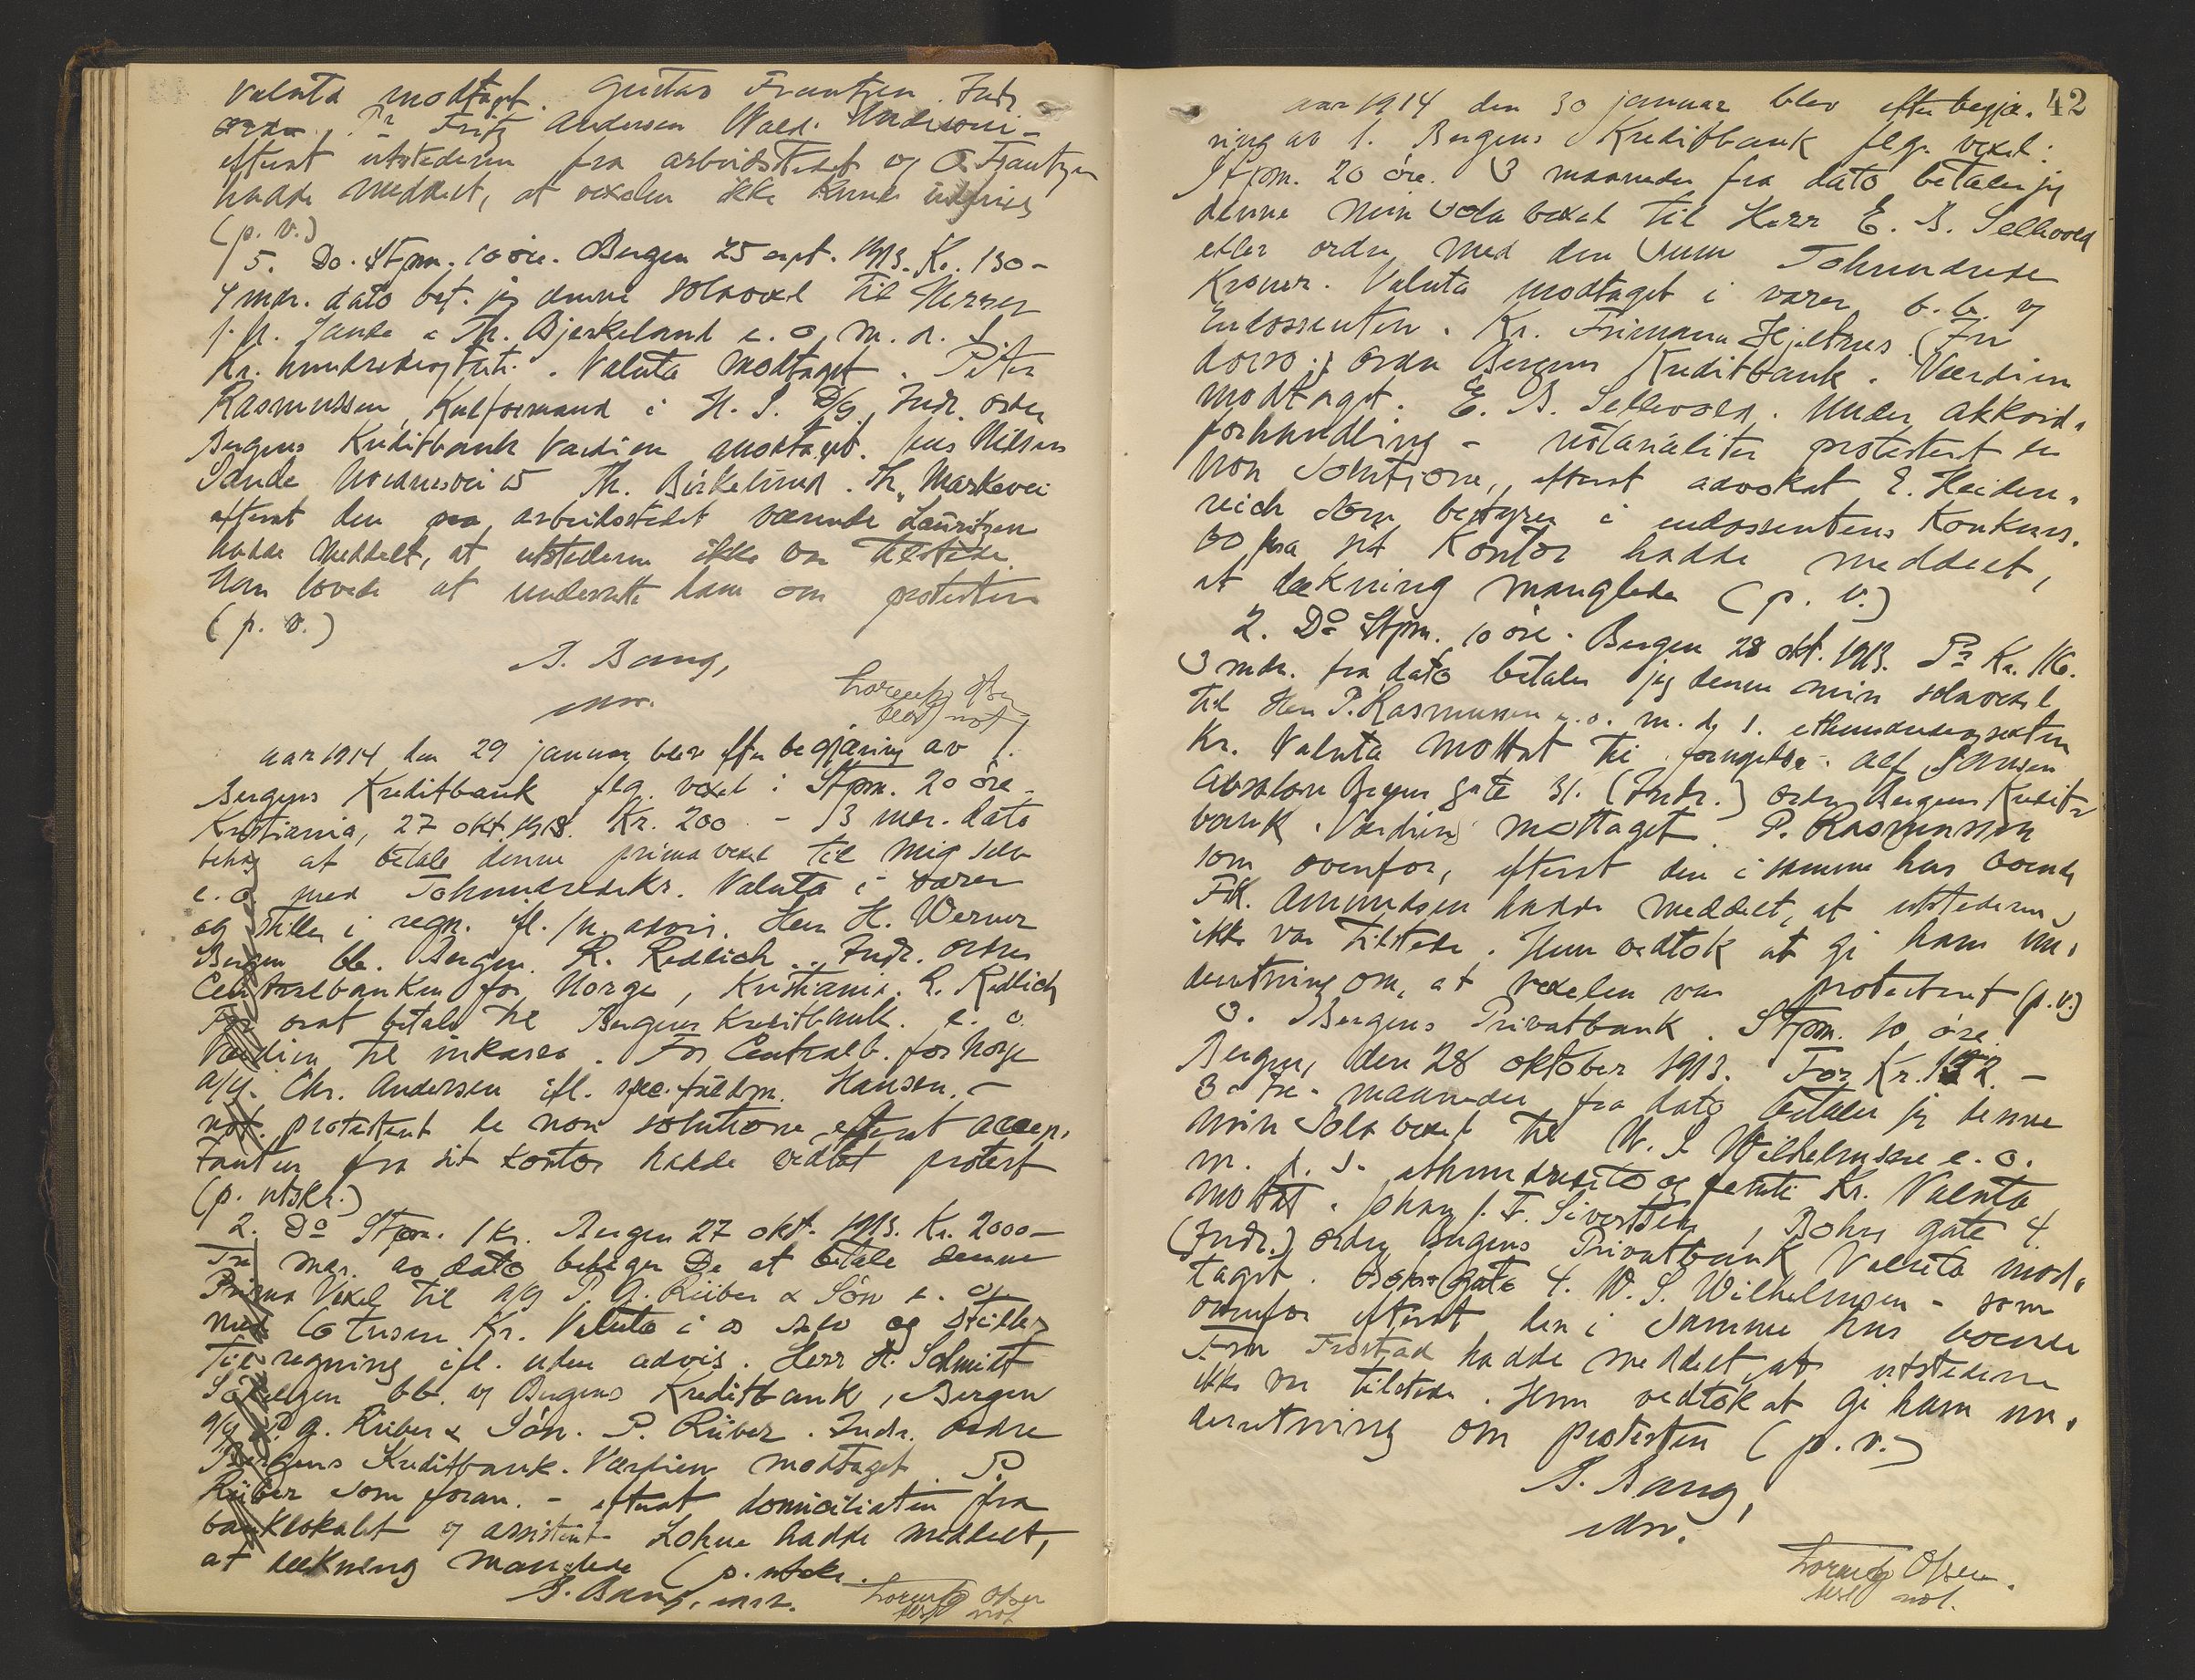 Valuta modtaget. Gustav Frantzen. Indr
ordre, Pr Fritz Andersen Wald. Andersen -
efterat utstederen fra arbeidsstedet og O. Frantzen
hadde meddelt, at vexelen ikke kunde
(p. v.)
5. Do. Stpm. 10 öre. Bergen 25 sept. 1913. Kr. 130 -
4 mdr. dato bet. jeg denne solavexel til Herrer
J. N. Sande & Th. Bjerkelund e. o. m. d. S.
Kr. hundredeogtreti. Valuta modtaget. Peter
Rasmussen, Kulformand i H. J. D/S, Indr. ordre
Bergens Kreditbank Værdien modtaget. Jens Nilsen
Sande 15 Th. Birkelund. Th. Markevei
efterat den paa arbeidsstedet værende Lauritzen
hadde meddelt, at utstederen ikke var tilstede.
Han lovede at underrette ham om protesten
(p. v.)
B. Bang,
Lorentz Olsen
not
Aar 1914 den 29 januar blev efter begjæring av 1.
Bergens Kreditbank flg. vexel: Stpm. 20 öre -
Kristiania, 27 okt. 1913. Kr. 200 - 3 mdr. dato
behag at betale denne prima vexel til mig selv
e. o. med Tohundredekr. Valuta i varer
og stilles i regn. ifl. /u. advis. Herr H. Werner
Bergen bb. Bergen. R. Redlich. Indr. ordre
Centralbanken for Norge, Kristiania. R. Redlich
For osat betale til Bergens Kreditbank. e. o.
Værdien til inkasso. For Centralb. for Norge
A/S. Chr. Andersen ifl. spec. fuldm. Hansen. -
not. protestert de non solutione efterat accep-
tanten fra sit kontor hadde vedtat protest
(p. utskr.)
2. Do Stpm. 1 kr. Bergen 27 okt. 1913. Kr. 2000 -
Tre mdr. av dato behager De at betale denne
Prima Vexel til A/S P. G. Rieber & Søn e. o.
med Totusen Kr. Valuta i os selv og stilles
til regning ifl. uden advis. Herr H. Schmidt
bb. og Bergens Kreditbank, Bergen
A/S P. G. Rieber & Søn. P. Rieber. Indr. ordre
Bergens Kreditbank. Værdien modtaget P.
Rieber som foran. - efterat domiciliaten fra
banklokalet og assistent Lohne hadde meddelt,
at dækning manglede (p. utskr.
B. Bang, Lorentz Olsen
not
42
Aar 1914 den 30 januar blev efter begjæ-
ring av 1. Bergens Kreditbank flg. vexel:
Stpm. 20 öre. 3 maaneder fra dato betaler jeg
denne min sola vexel til Herr E. B. Sellevold
eller ordre med den Sum Tohundrede
Kroner. Valuta modtaget i varer b. b. og
Endossenten. Kr. Frimann Hjeltnes (In
dosso:) ordre Bergens Kreditbank. Værdien
modtaget. E. B. Sellevold. Under akkord-
forhandling - notarialiter protestert de
non solutione, efterat advokat E. Heiden-
reich som bestyrer i endossentens Konkurs-
bo fra sit Kontor hadde meddelt,
at dækning manglede (p. v.)
2. Do Stpm. 10 öre. Bergen 28 okt. 1913. Pr Kr. 116.
3 mdr. fra dato betaler jeg denne min solavexel
til Herr P. Rasmussen e. o. m. d. s. ethundredeogseksten
Kr. Valuta mottat til fornøyelse. Alf Jansen
Absalon Beyers gate 31. (Indr.) ordre Bergens Kredit-
bank. Værdien mottaget. P. Rasmussen
som ovenfor, efterat den i samme hus boende
Frk. Amundsen hadde meddelt, at utstederen
ikke var tilstede. Hun vedtok at gi ham un-
derretning om, at vexelen var protestert (p. v.)
3. Bergens Privatbank. Stpm. 10 öre.
Bergen, den 28 oktober 1913. For Kr. 152. -
3 - tre - maaneder fra dato betaler jeg denne
min Sola vexel til W. S. Wilhelmsen e. o.
m. d. s. ethundredeto og femti Kr. Valuta
mottat. Johan J. F. Sivertsen, Bohrs gate 4.
(Indr.) ordre Bergens Privatbank Valuta mod-
taget. Bohrs gate 4. W. S. Wilhelmsen - som
ovenfor efterat den i samme hus boende
Fru Frostad hadde meddelt, at utstederen
ikke var tilstede. Hun vedtok at gi ham un-
derretning om protesten (p. v.)
B. Bang,
Lorentz Olsen.
not.